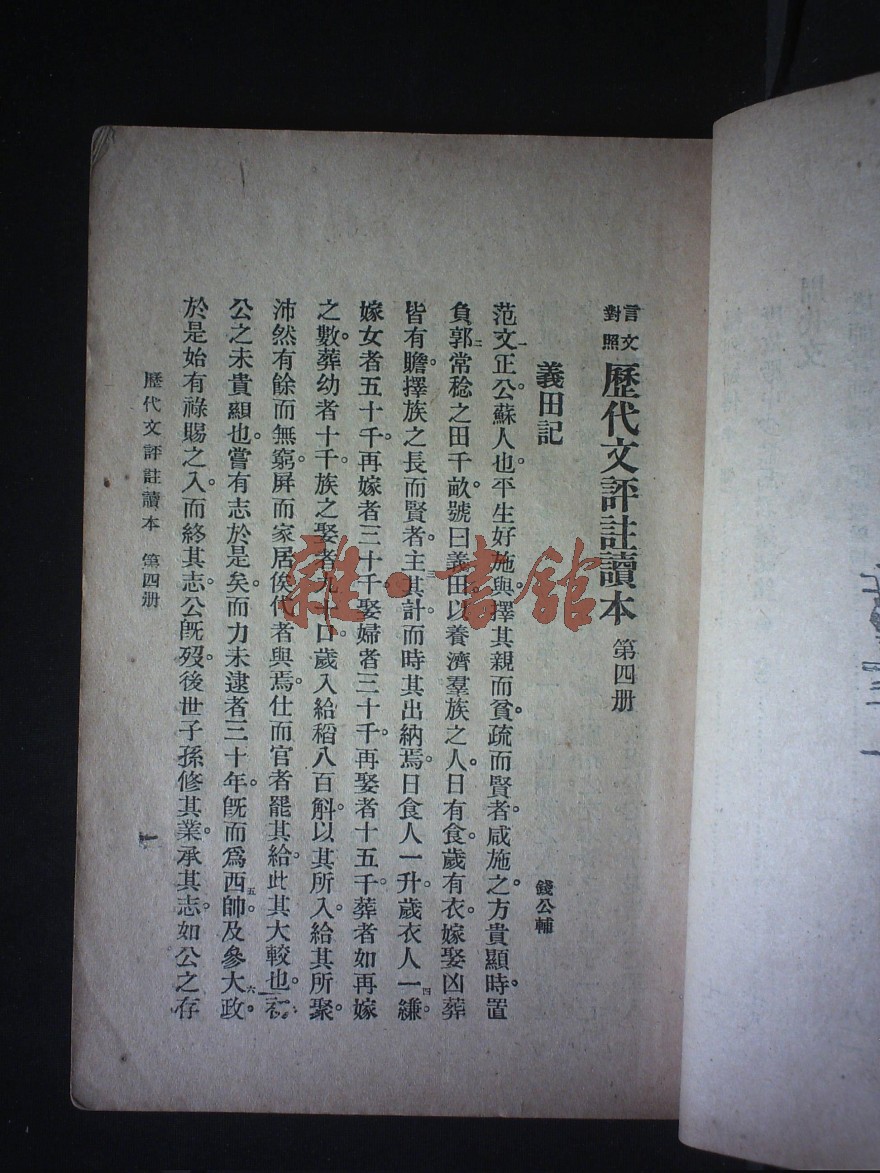 言文對照 歷代文評註讀本 第四册
義田記 錢公輔
范文正公。蘇人也。平生好施與。擇其親而貧。疏而賢者。咸施之。方貴顯時。置
負郭常稔之田千畝。號曰義田。以養濟羣族之人。日有食。歲有衣。嫁娶凶葬
皆有贍。擇族之長而賢者。主其計。而時其出納焉。日食人一升。歲衣人一縑。
嫁女者五十千。再嫁者三十千。娶婦者三十千。再娶者十五千。葬者如再嫁
之數。葬幼者十千。族之聚者九十口。歲入給稻八百斛。以其所入。給其所聚。
沛然有餘而無窮。屏而家居俟代者與焉。仕而官者罷其給。此其大較也。初
公之未貴顯也。嘗有志於是矣。而力未逮者三十年。旣而爲西帥。及參大政。
於是始有祿賜之入。而終其志。公旣歿。後世子孫修其業。承其志。如公之存
歷代文評註讀本 第四册
一
雜·書館